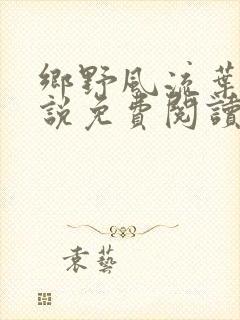 鄉野風流葉
說免費閱讀
袁藝